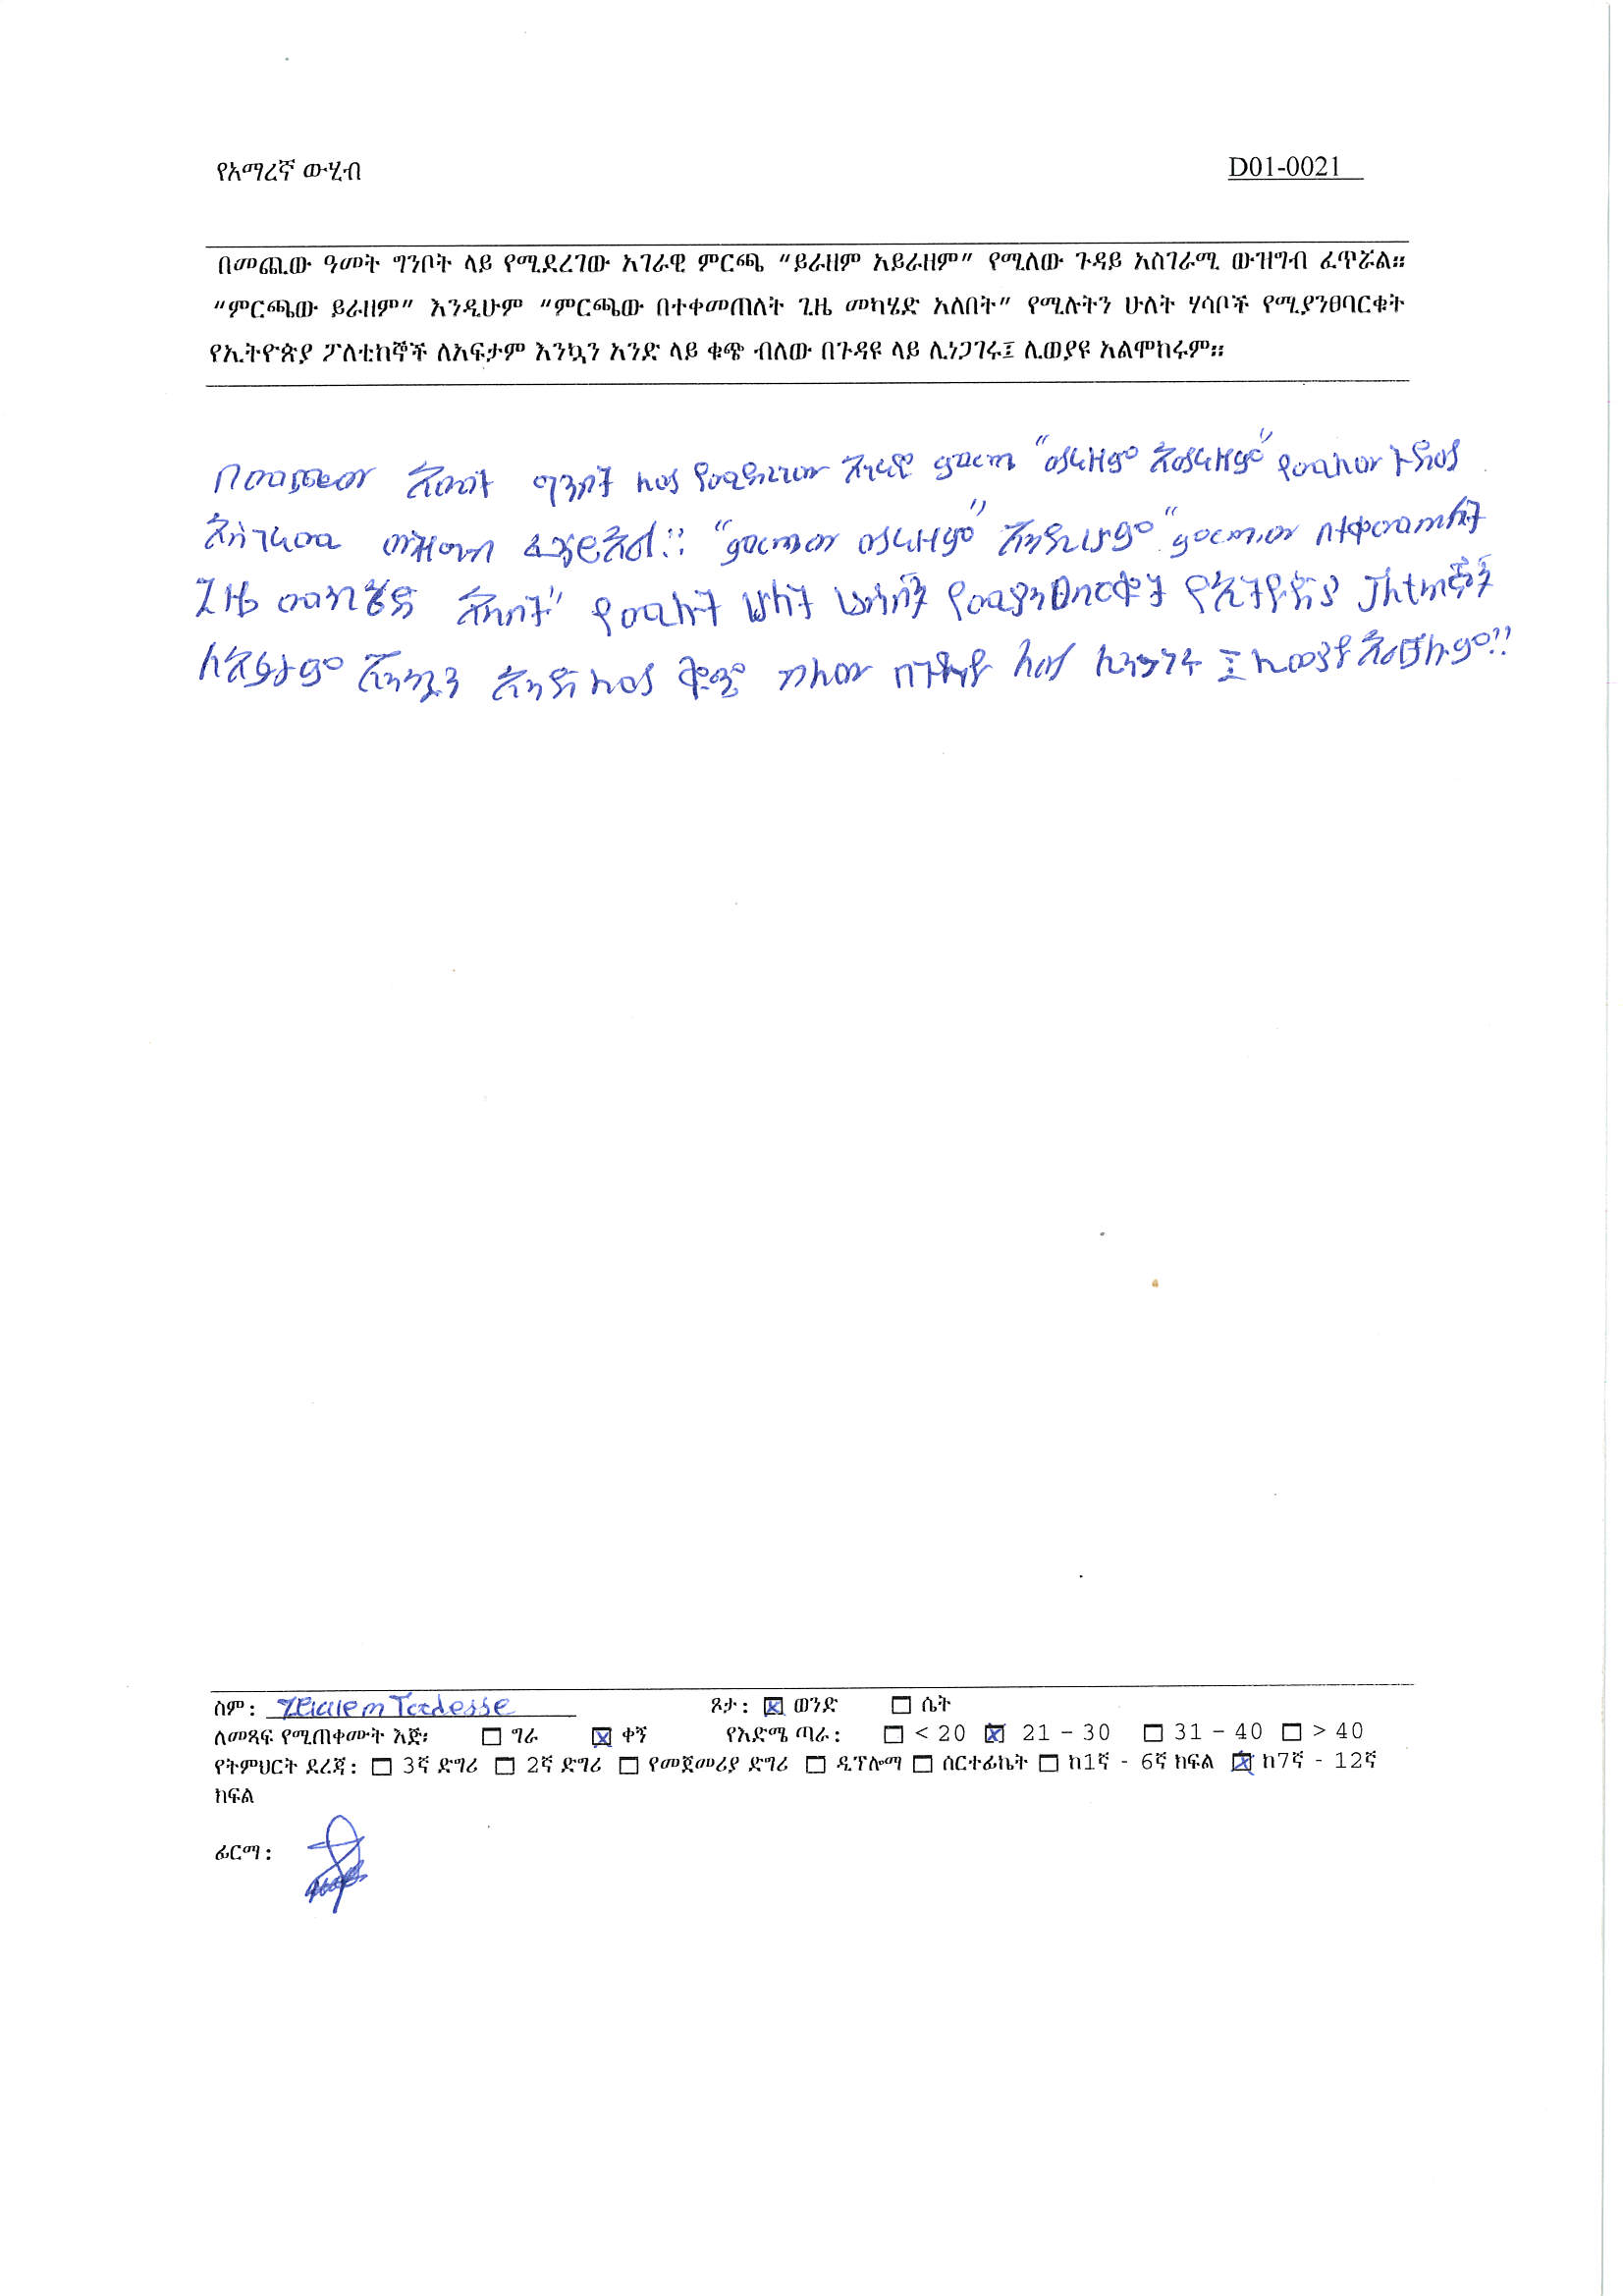 የአማረኛ ውሂብ D01-0021
በመጪው ዓመት ግንቦት ላይ የሚደረገው አገራዊ ምርጫ “ይራዘም አይራዘም” የሚለው ጉዳይ አስገራሚ ውዝግብ ፈጥሯል።
“ምርጫው ይራዘም” እንዲሁም “ምርጫው በተቀመጠለት ጊዜ መካሄድ አለበት” የሚሉትን ሁለት ሃሳቦች የሚያንፀባርቁት
የኢትዮጵያ ፖለቲከኞች ለአፍታም እንኳን አንድ ላይ ቁጭ ብለው በጉዳዩ ላይ ሊነጋገሩ፤ ሊወያዩ አልሞከሩም።
በመጪው አመት ግንቦት ላይ የሚደረገው አገራዊ ምርጫ “ይራዘም አይራዘም” የሚለው ጉዳይ
አስገራሚ ውዝግብ ፈጥሯል። “ምርጫው ይራዘም” እንዲሁም “ምርጫው በተቀመጠለት
ጊዜ መካሄድ አለበት” የሚሉት ሁለት ሀሳቦች የሚያንፀባርቁት የኢትዮጵያ ፖለቲከኞች
ለአፍታም እንኳን አንድ ላይ ቁጭ ብለው በጉዳዩ ላይ ሊነጋገሩ ፤ ሊወያዩ አልሞከሩም።
ስም: Zelalem Tadesse ጾታ: ወንድ ሴት
ለመጻፍ የሚጠቀሙት እጅ፡ ግራ ቀኝ የእድሜ ጣራ: < 20 21 - 30 31 - 40 > 40
የትምህርት ደረጃ: 3ኛ ድግሪ 2ኛ ድግሪ የመጀመሪያ ድግሪ ዲፕሎማ ሰርተፊኬት ከ1ኛ - 6ኛ ክፍል ከ7ኛ - 12ኛ
ክፍል
ፊርማ: